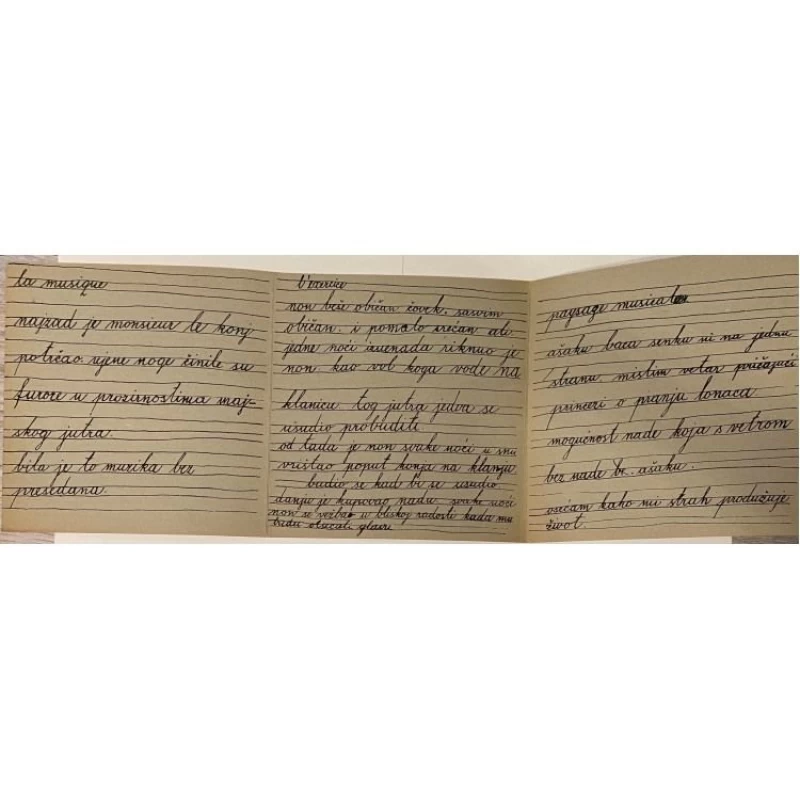 la musique
najzad je monsieur le konj
potrčao. njene noge činile su
furore u prozirnostima maj-
skog jutra.
bila je to muzika bez
presedana.
l'exercice
non beše običan čovek. sasvim
običan. i pomalo srećan. ali
jedne noći iznenada riknuo je
non kao vol koga vode na
klanicu. tog jutra jedva se
usudio probuditi.
od tada je non svake noći u snu
vrištao poput konja na klanju.
budio se kad bi se usudio.
danju je kupovao nadu. svake noći
non se vežbao u bliskoj radosti kada mu
budu otsecali glavu.
paysage musical
ašaku baca senku ni na jednu
stranu. mislim vetar pričajući
princezi o pranju lonaca
mogućnost nade koja s vetrom
bez nade br. ašaku.
osećam kako mi strah produžuje
život.